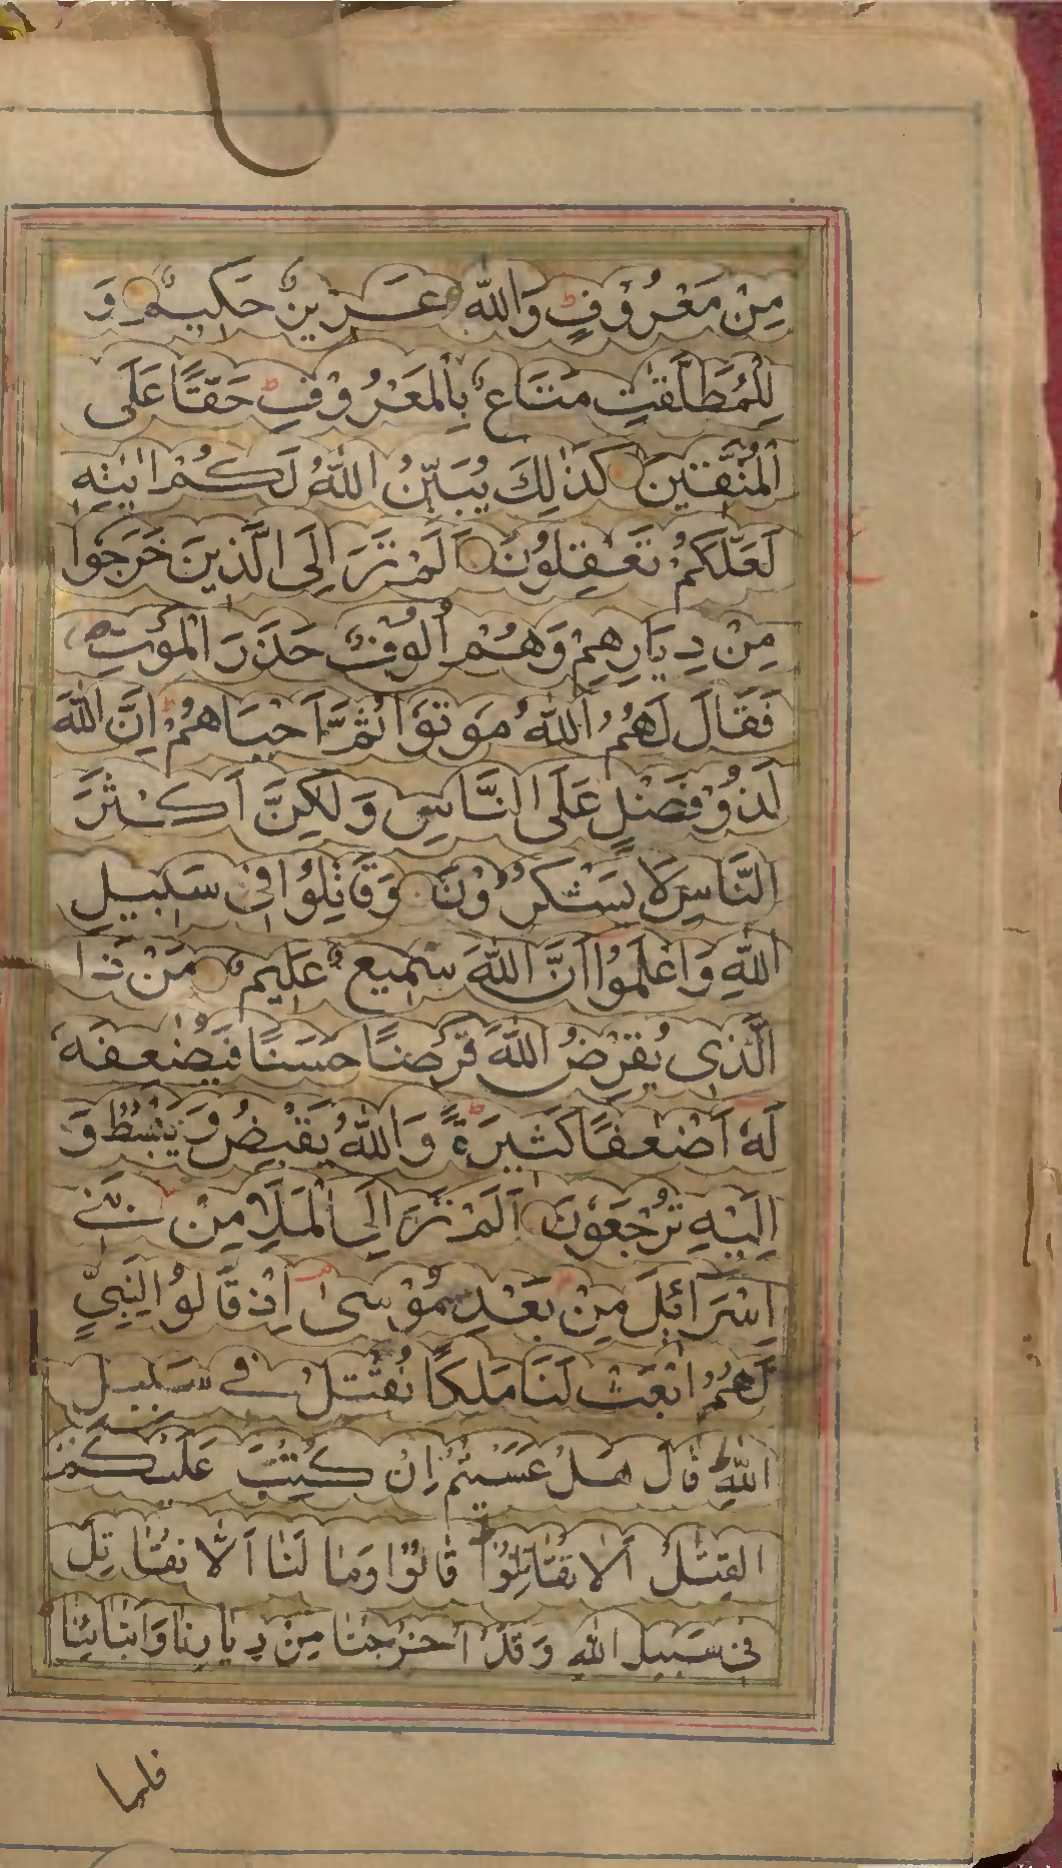 مِنْ مَعْرُوْفٍ ط وَاللّٰهُ عَزِيْزٌ حَكِيْمٌ ○ وَ
لِلْمُطَلَّقٰتِ مَتَاعٌ بِالْمَعْرُوْفِ ط حَقًّا عَلَى
الْمُتَّقِيْنَ ○ كَذٰلِكَ يُبَيِّنُ اللّٰهُ لَكُمْ اٰيٰتِهٖ
لَعَلَّكُمْ تَعْقِلُوْنَ ○ اَلَمْ تَرَ اِلَى الَّذِيْنَ خَرَجُوْا
مِنْ دِيَارِهِمْ وَهُمْ اُلُوْفٌ حَذَرَ الْمَوْتِ ص
فَقَالَ لَهُمُ اللّٰهُ مُوْتُوْا ثُمَّ اَحْيَاهُمْ ط اِنَّ اللّٰهَ
لَذُوْ فَضْلٍ عَلَى النَّاسِ وَلٰكِنَّ اَكْثَرَ
النَّاسِ لَا يَشْكُرُوْنَ ○ وَقَاتِلُوْا فِيْ سَبِيْلِ
اللّٰهِ وَاعْلَمُوْا اَنَّ اللّٰهَ سَمِيْعٌ عَلِيْمٌ ○ مَنْ ذَا
الَّذِيْ يُقْرِضُ اللّٰهَ قَرْضًا حَسَنًا فَيُضٰعِفَهٗ
لَهٗ اَضْعَافًا كَثِيْرَةً ط وَاللّٰهُ يَقْبِضُ وَيَبْصُۜطُ وَ
اِلَيْهِ تُرْجَعُوْنَ ○ اَلَمْ تَرَ اِلَى الْمَلَاِ مِنْ بَنِيْ
اِسْرَآئِلَ مِنْ بَعْدِ مُوْسٰى اِذْ قَالُوْا لِنَبِيٍّ
لَهُمُ ابْعَثْ لَنَا مَلِكًا نُقٰتِلْ فِيْ سَبِيْلِ
اللّٰهِ ط قَالَ هَلْ عَسَيْتُمْ اِنْ كُتِبَ عَلَيْكُمُ
الْقِتَالُ اَلَّا تُقَاتِلُوْا قَالُوْا وَمَا لَنَا اَلَّا نُقَاتِلَ
فِيْ سَبِيْلِ اللّٰهِ وَقَدْ اُخْرِجْنَا مِنْ دِيَارِنَا وَاَبْنَائِنَا
فلما